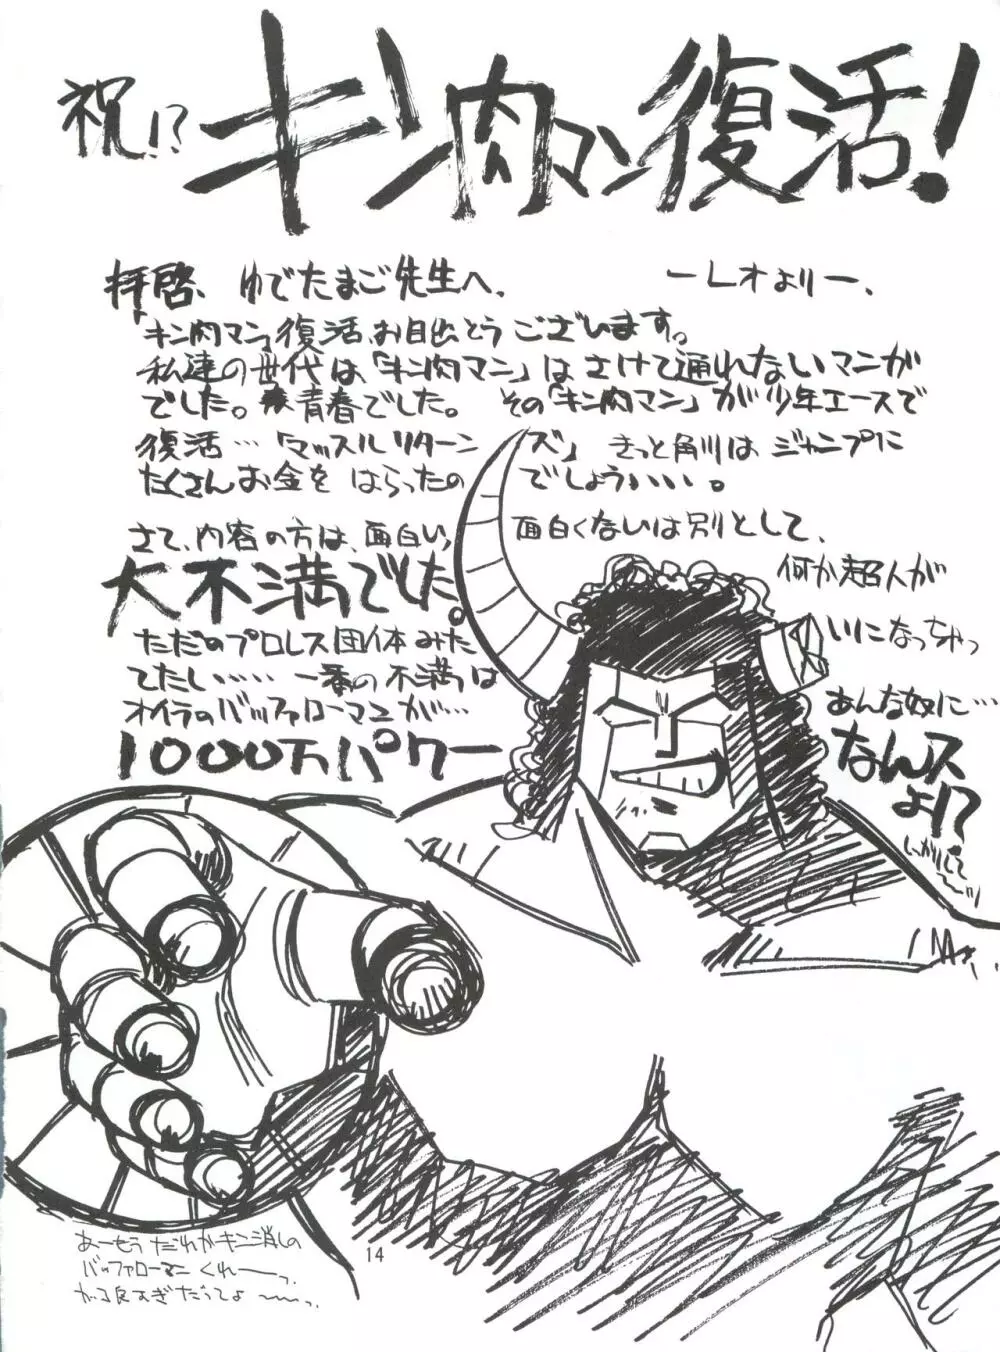 祝!? キン肉マン復活!
拝啓、ゆでたまご先生へ、 ーレオよりー、
「キン肉マン」復活、お目出とうございます。
私達の世代は、「キン肉マン」はさけて通れないマンガ
でした。青春でした。 その「キン肉マン」が少年エースで
復活…「マッスルリターンズ」きっと角川はジャンプに
たくさんお金をはらったのでしょういいい。
さて、内容の方は、面白い、面白くないは別として、
大不満でした。
何か超人が
ただのプロレス団体みた
いになっちゃっ
てたし…… 一番の不満は
オイラのバッファローマンが…
あんな奴に…
1000万パワー
なんス
よ!?
しっかりして
あーもうだれかキン消しの
バッファローマンくれーっ、
14